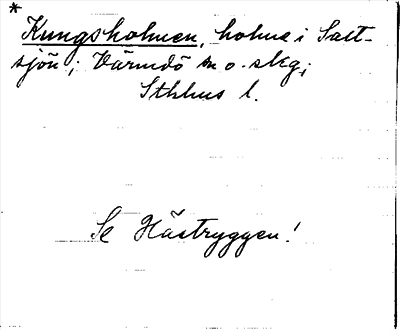 *
Kungsholmen, holme i Salt-
sjön; Värmdö sn o. skg;
Sthlms l.
Se Hästryggen!